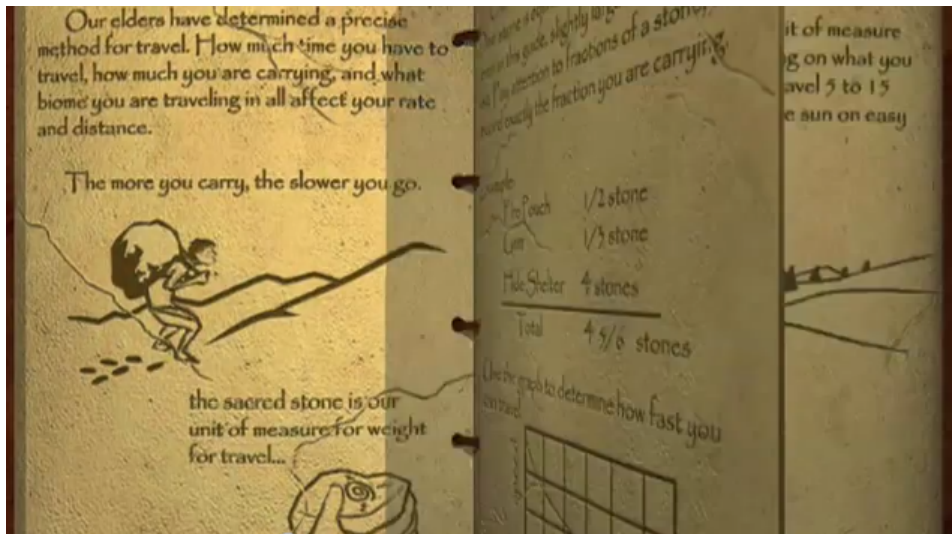 Our elders have determined a precise
method for travel. How much time you have to
travel, how much you are carrying, and what
biome you are traveling in all affect your rate
and distance.
The more you carry, the slower you go.
the sacred stone is our
unit of measure for weight
for travel...
in this guide, slightly
attention to fractions of a stone,
exactly the fraction you are carrying.
Fire Pouch 1/2 stone
1/3 stone
Hide Shelter 4 stones
Total 4 5/6 stones
Use the graph to determine how fast you
can travel.
speed
it of measure
g on what you
avel 5 to 15
e sun on easy